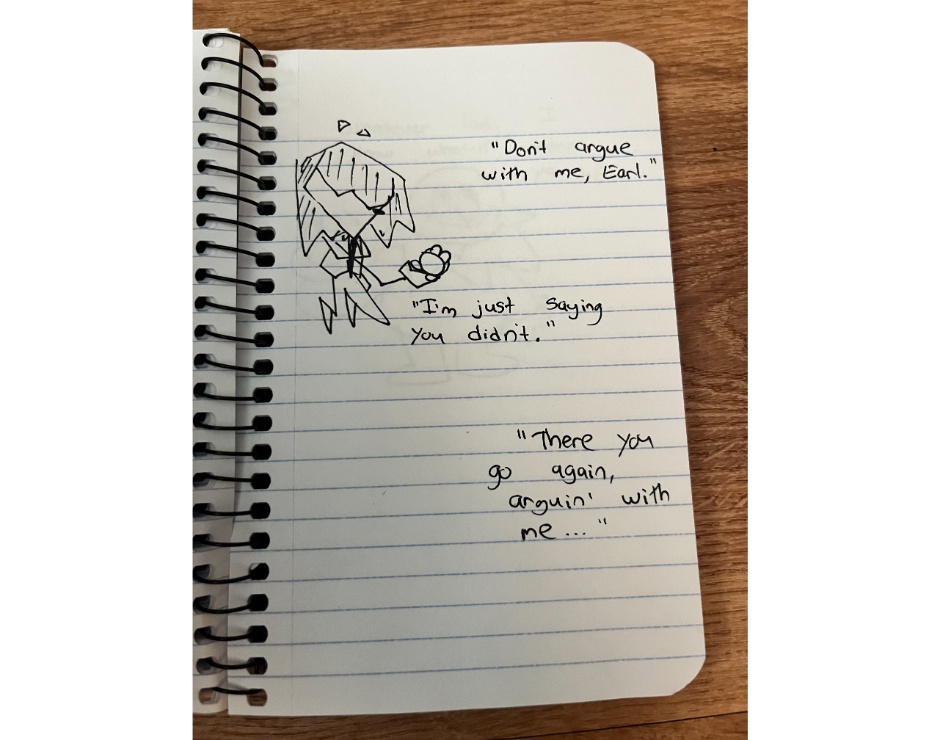 "Don't argue
with me, Earl."
"I'm just saying
you didn't."
"There you
go again,
arguin' with
me..."